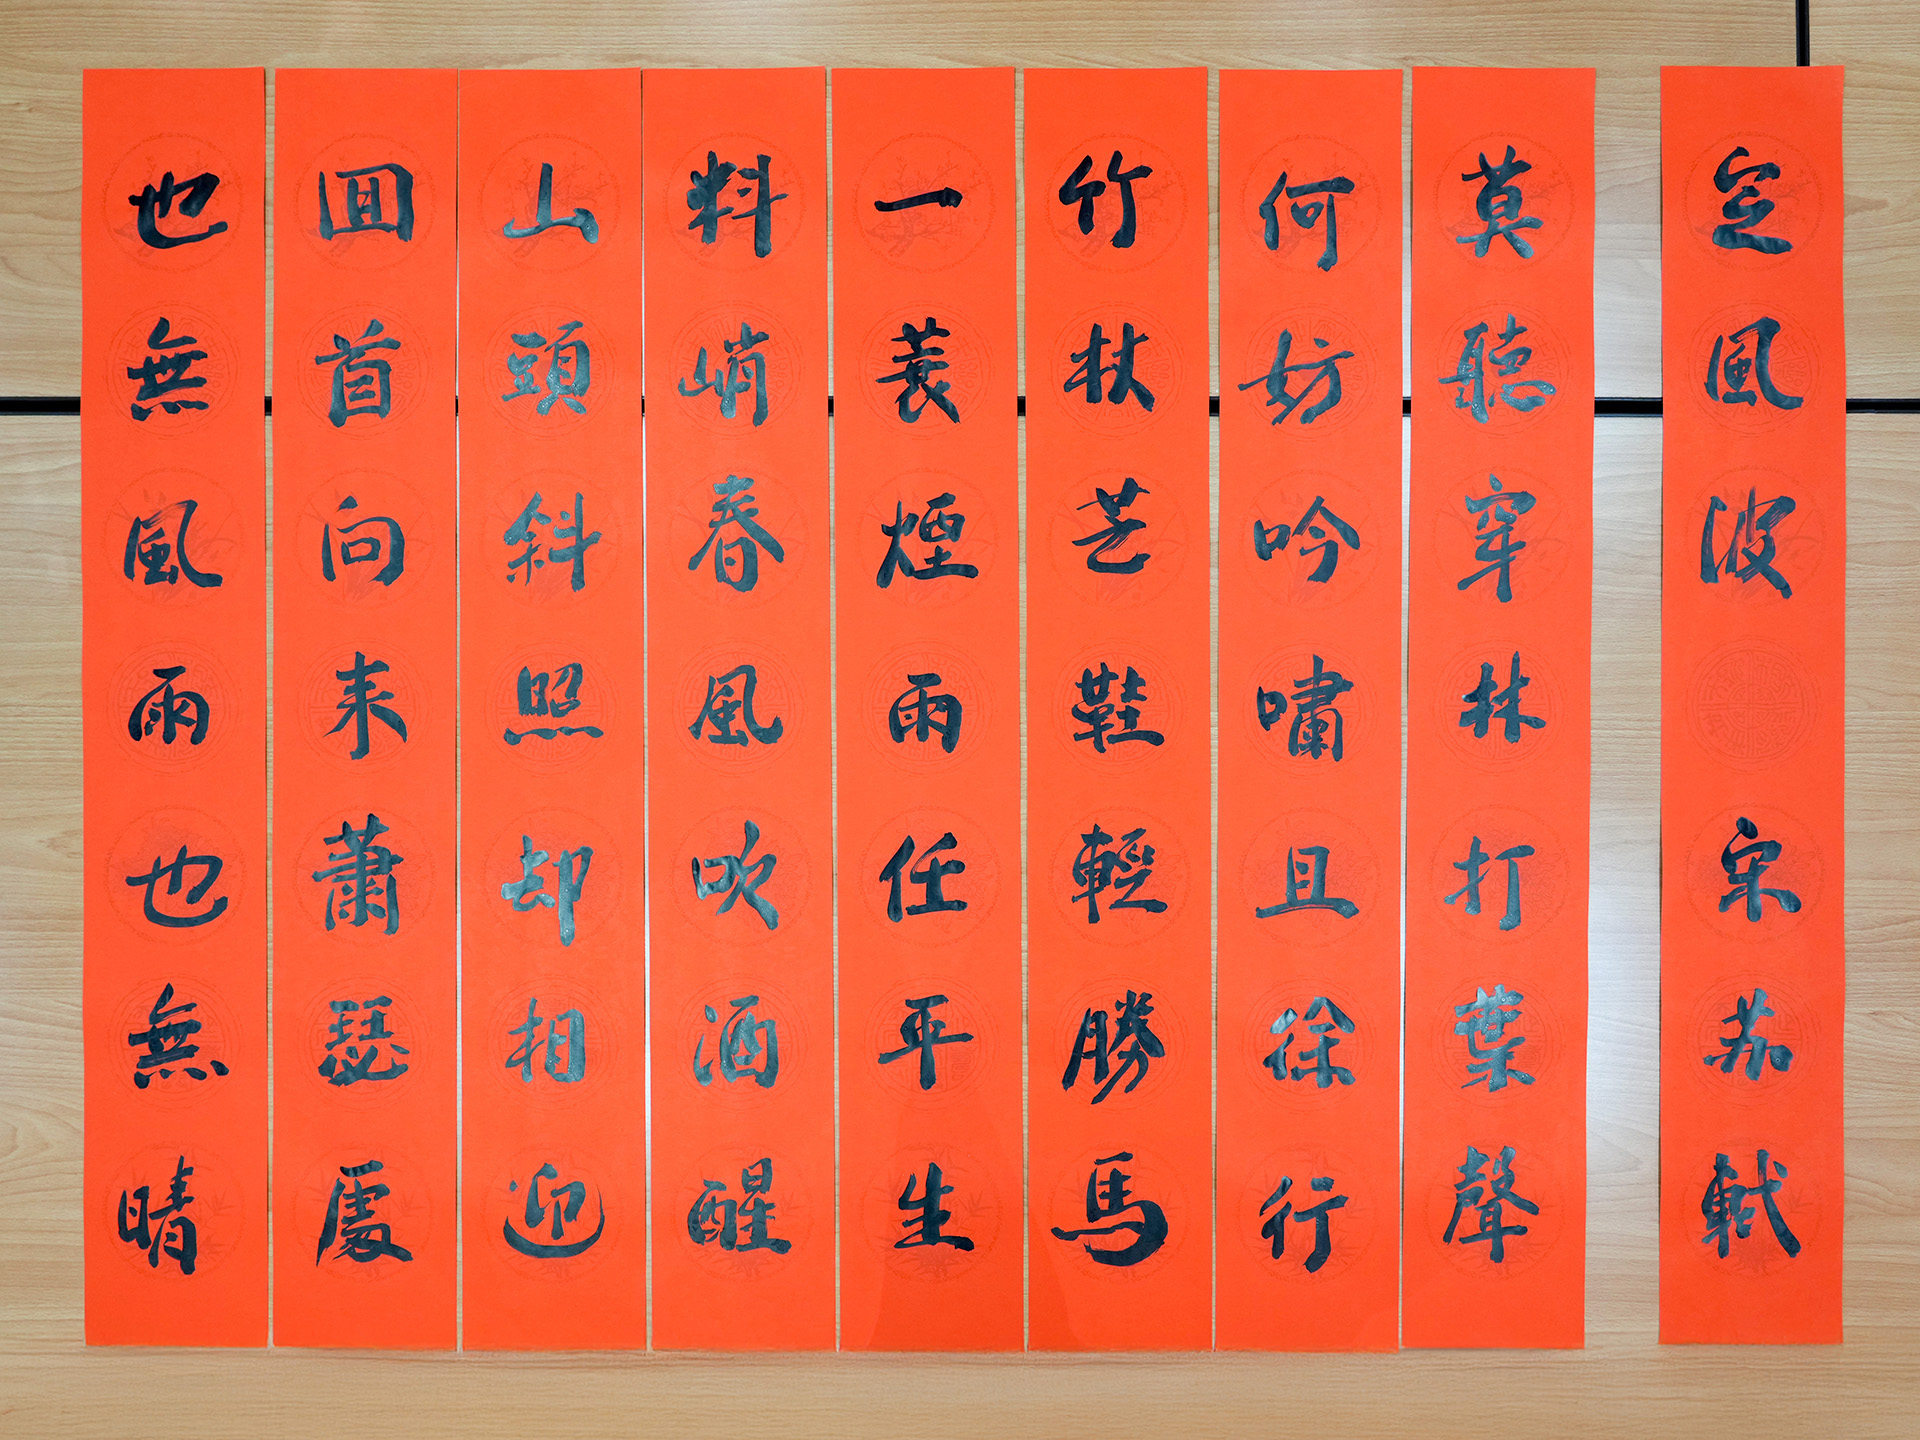 定風波 宋苏軾
莫聽穿林打葉聲
何妨吟嘯且徐行
竹杖芒鞋輕勝馬
一蓑煙雨任平生
料峭春風吹酒醒
山頭斜照却相迎
回首向来蕭瑟處
也無風雨也無晴